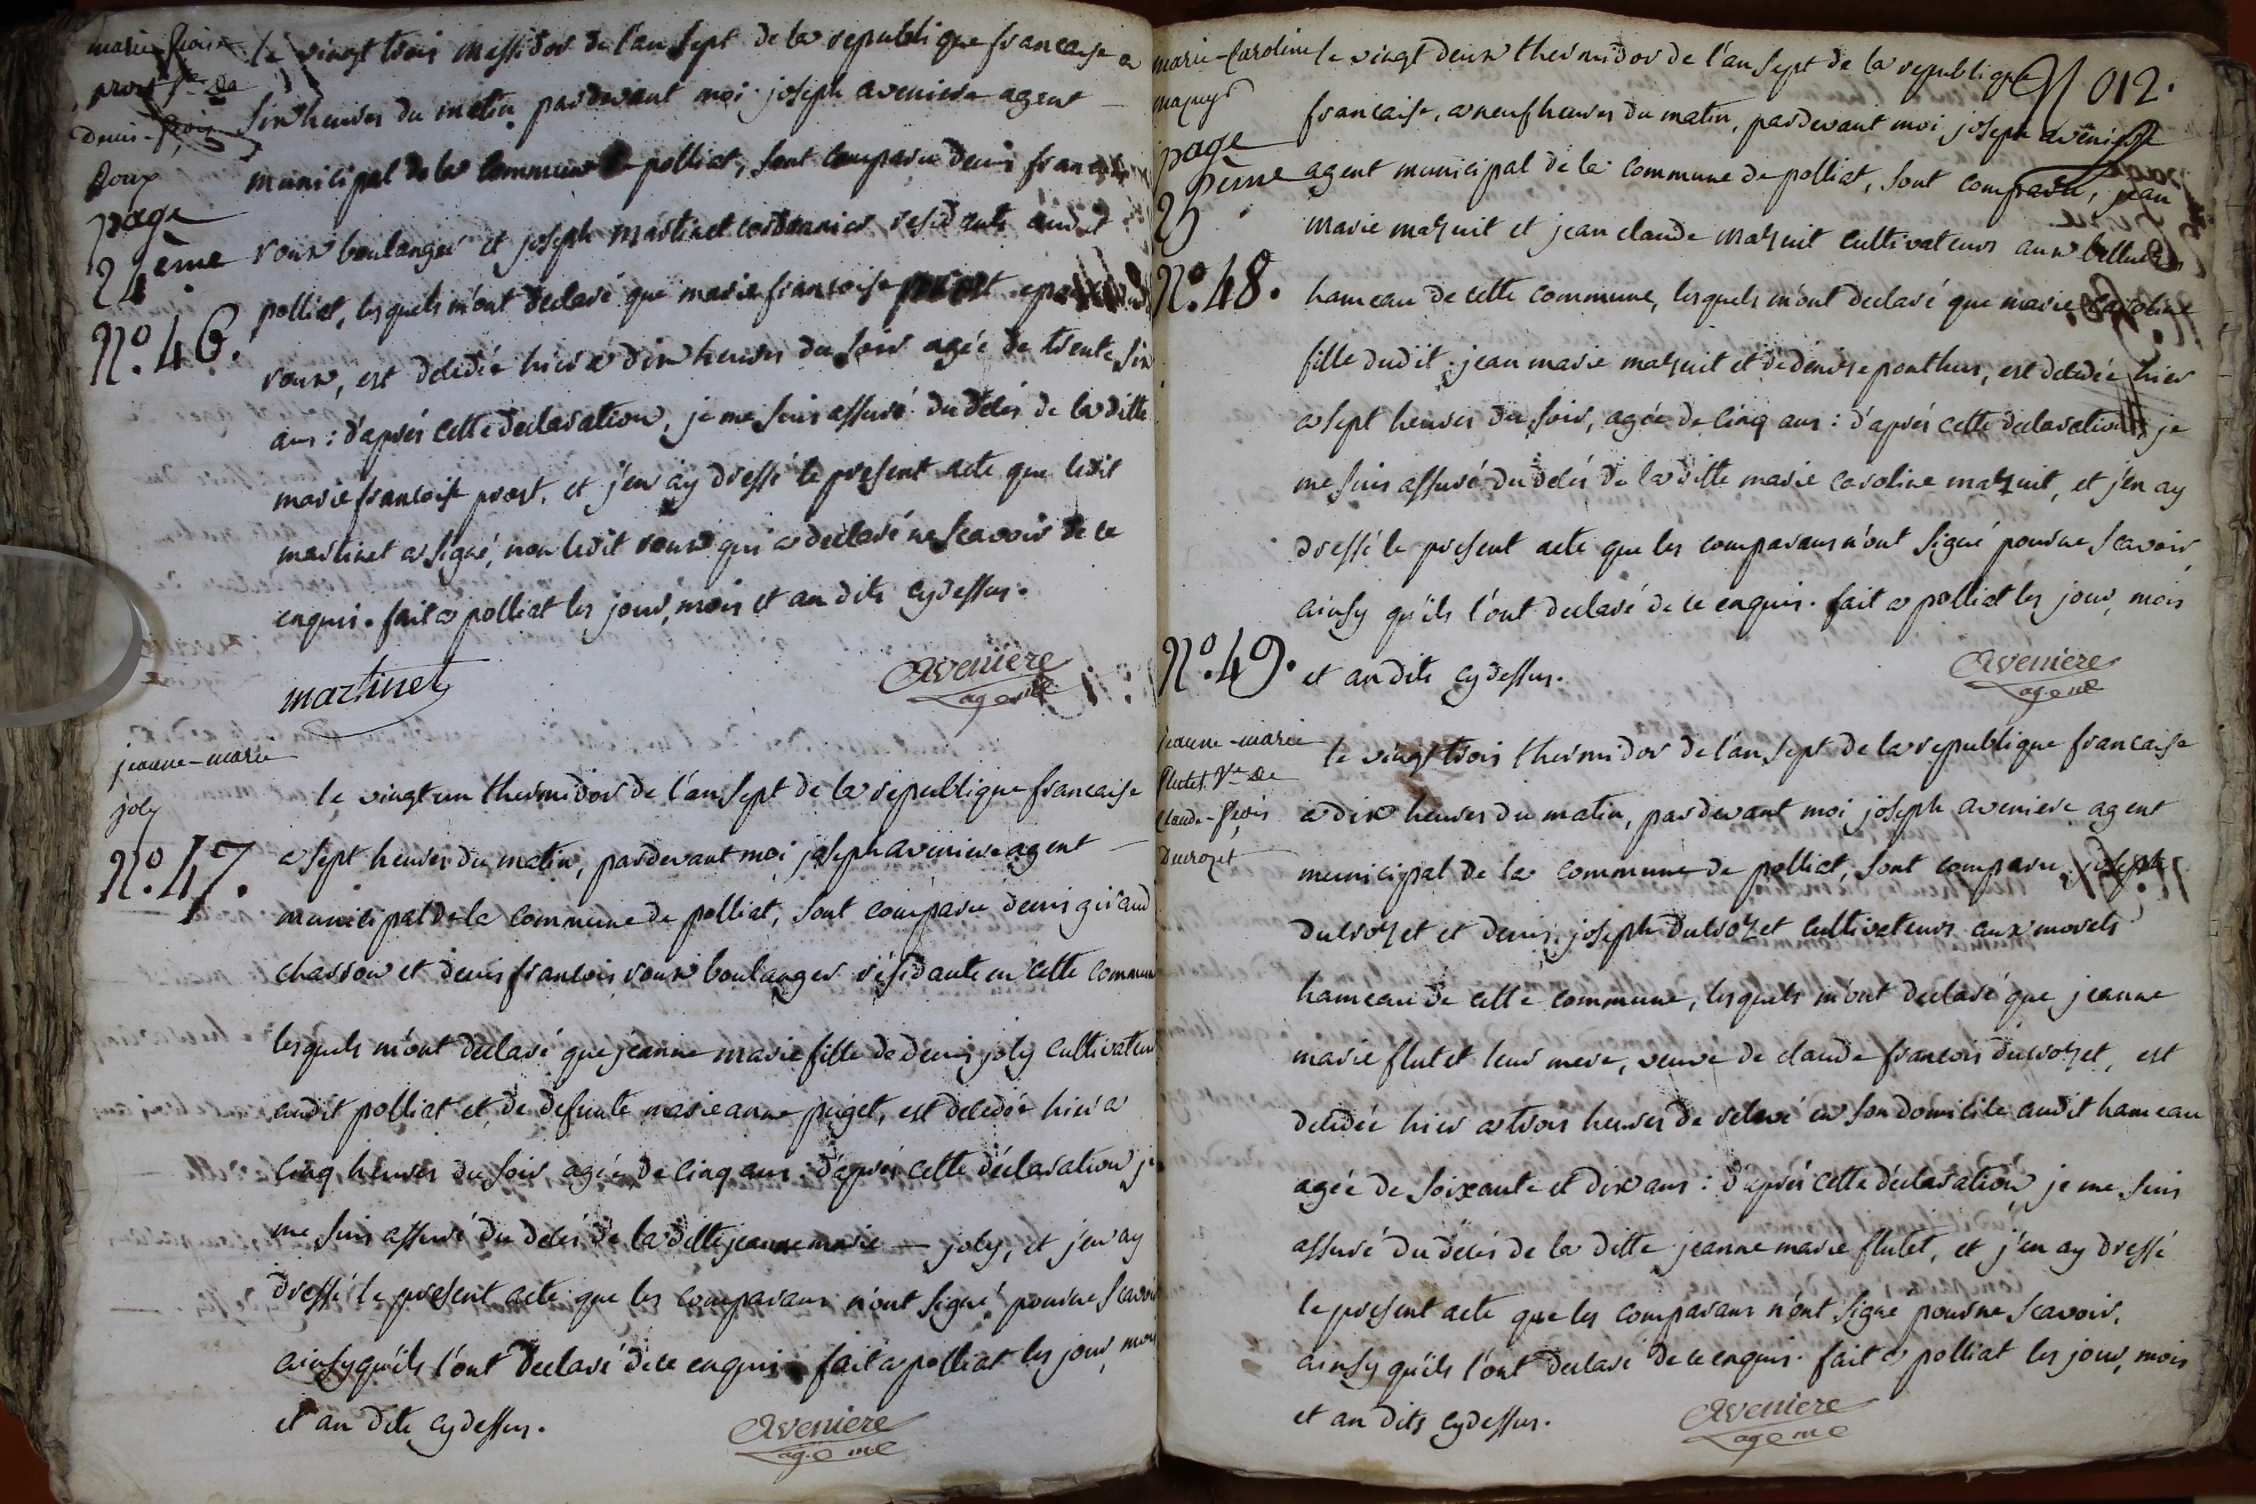 marie-fçoise
prost fe de
denis-fçois
Roux
page
24ème
N°.46.
le vingt trois messidor de l'an sept de la republique francaise a
six heures du matin pardevant moi joseph aveniere agent —
municipal de la commune de polliat, sont comparu denis francois
roux boulanger et joseph martinet cordonnier residants audit
polliat, lesquels m'ont declaré que marie francoise prost epouse dudit
roux, est decedée hier a dix heures du soir agée de trente six
ans : d'aprés cette declaration, je me suis assuré du décés de la ditte
marie francoise prost, et j'en ay dressé le present acte que ledit
martinet a signé, non ledit roux qui a declaré ne scavoir de ce
enquis. fait a polliat les jour, mois et an dits cydessus.
martinet
Aveniere
ag. m.
jeanne-marie
joly
N°.47.
le vingt un thermidor de l'an sept de la republique francaise
a sept heures du matin, pardevant moi joseph aveniere agent —
municipal de la commune de polliat, sont comparu denis giraud
charron et denis francois roux boulanger résidants en cette commune
lesquels m'ont déclaré que jeanne marie fille de denis joly cultivateur
audit polliat et de defunte marie anne puget, est decedée hier a
cinq heures du soir agée de cinq ans : d'aprés cette déclaration je
me suis assuré du decés de la ditte jeanne marie — joly, et j'en ay
dressé le présent acte que les comparans n'ont signé pour ne scavoir
ainsy qu'ils l'ont declaré de ce enquis. fait a polliat les jour, mois
et an dits cydessus.
Aveniere
ag. m.
N 012.
marie-Caroline
page
25ème
N°.48.
le vingt deux thermidor de l'an sept de la republique
francaise, a neuf heures du matin, pardevant moi joseph aveniere
agent municipal de la commune de polliat, sont comparu, jean
marie mazuit et jean claude mazuit cultivateurs aux
hameau de cette commune, lesquels m'ont declaré que marie caroline
fille dudit jean marie mazuit et de denise ponthus, est decedée hier
a sept heures du soir, agée de cinq ans : d'aprés cette declaration, je
me suis assuré du decés de la ditte marie caroline mazuit, et j'en ay
dressé le present acte que les comparans n'ont signé pour ne scavoir
ainsy qu'ils l'ont declaré de ce enquis. fait a polliat les jour, mois
et an dits cydessus.
Aveniere
ag. m.
N°.49.
jeanne-marie
flutet Ve de
claude-fçois
Ducrozet
le vingt trois thermidor de l'an sept de la republique francaise
a dix heures du matin, pardevant moi joseph aveniere agent
municipal de la commune de polliat, sont comparu joseph
ducrozet et denis joseph ducrozet cultivateurs aux morels
hameau de cette commune, lesquels m'ont declaré que jeanne
marie flutet leur mere, veuve de claude francois ducrozet, est
decedée hier a trois heures de relevé en son domicile audit hameau
agée de soixante et dix ans : d'aprés cette déclaration, je me suis
assuré du decés de la ditte jeanne marie flutet, et j'en ay dressé
le present acte que les comparans n'ont signé pour ne scavoir,
ainsy qu'ils l'ont declaré de ce enquis. fait a polliat les jour, mois
et an dits cydessus.
Aveniere
ag. m.